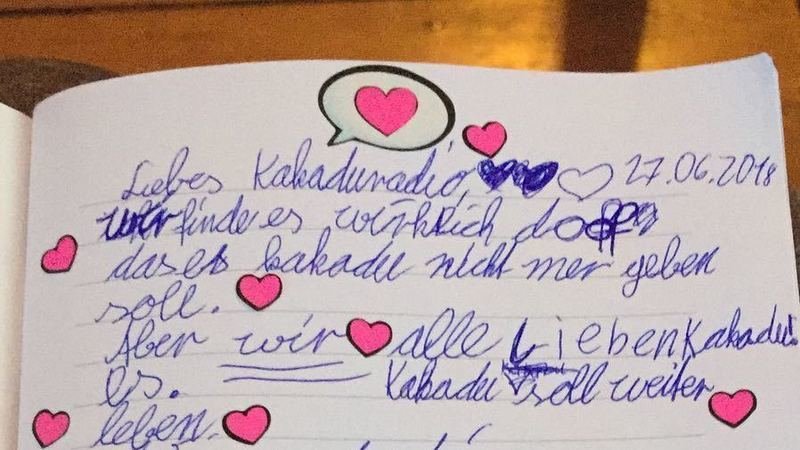 Liebes Kakaduradio, 27.06.2018
wir finde es wirklich doff
das es kakadu nicht mer geben
soll.
Aber wir alle Lieben Kakadu!
es. Kakadu soll weiter
leben.